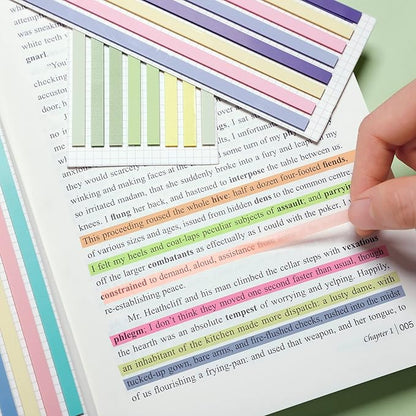 was sneaking
white teeth
gnarl.
"You
checking
door,
not
they would scarcely
I unfortunate
winking and making faces at the turn of my
so irritated madam, that she suddenly broke into a fury and leapt
knees. I flung her back, and hastened to interpose the table between us.
This proceeding roused the whole hive: half a dozen four-footed fiends,
of various sizes and ages, issued from hidden dens to the common centre.
I felt my heels and coat-laps peculiar subjects of assault; and parrying
of the larger combatants as effectually as I could with the poker, I
constrained to demand, aloud, assistance from
re-establishing peace.
Mr. Heathcliff and his man climbed the cellar steps with vexatious
phlegm: I don't think they moved one second faster than usual, though
the hearth was an absolute tempest of worrying and yelping. Happily,
an inhabitant of the kitchen made more dispatch: a lusty dame, with
tucked-up gown, bare arms, and fire-flushed cheeks, rushed into the midst
of us flourishing a frying-pan: and used that weapon, and her tongue, to
Chapter 1 | 005